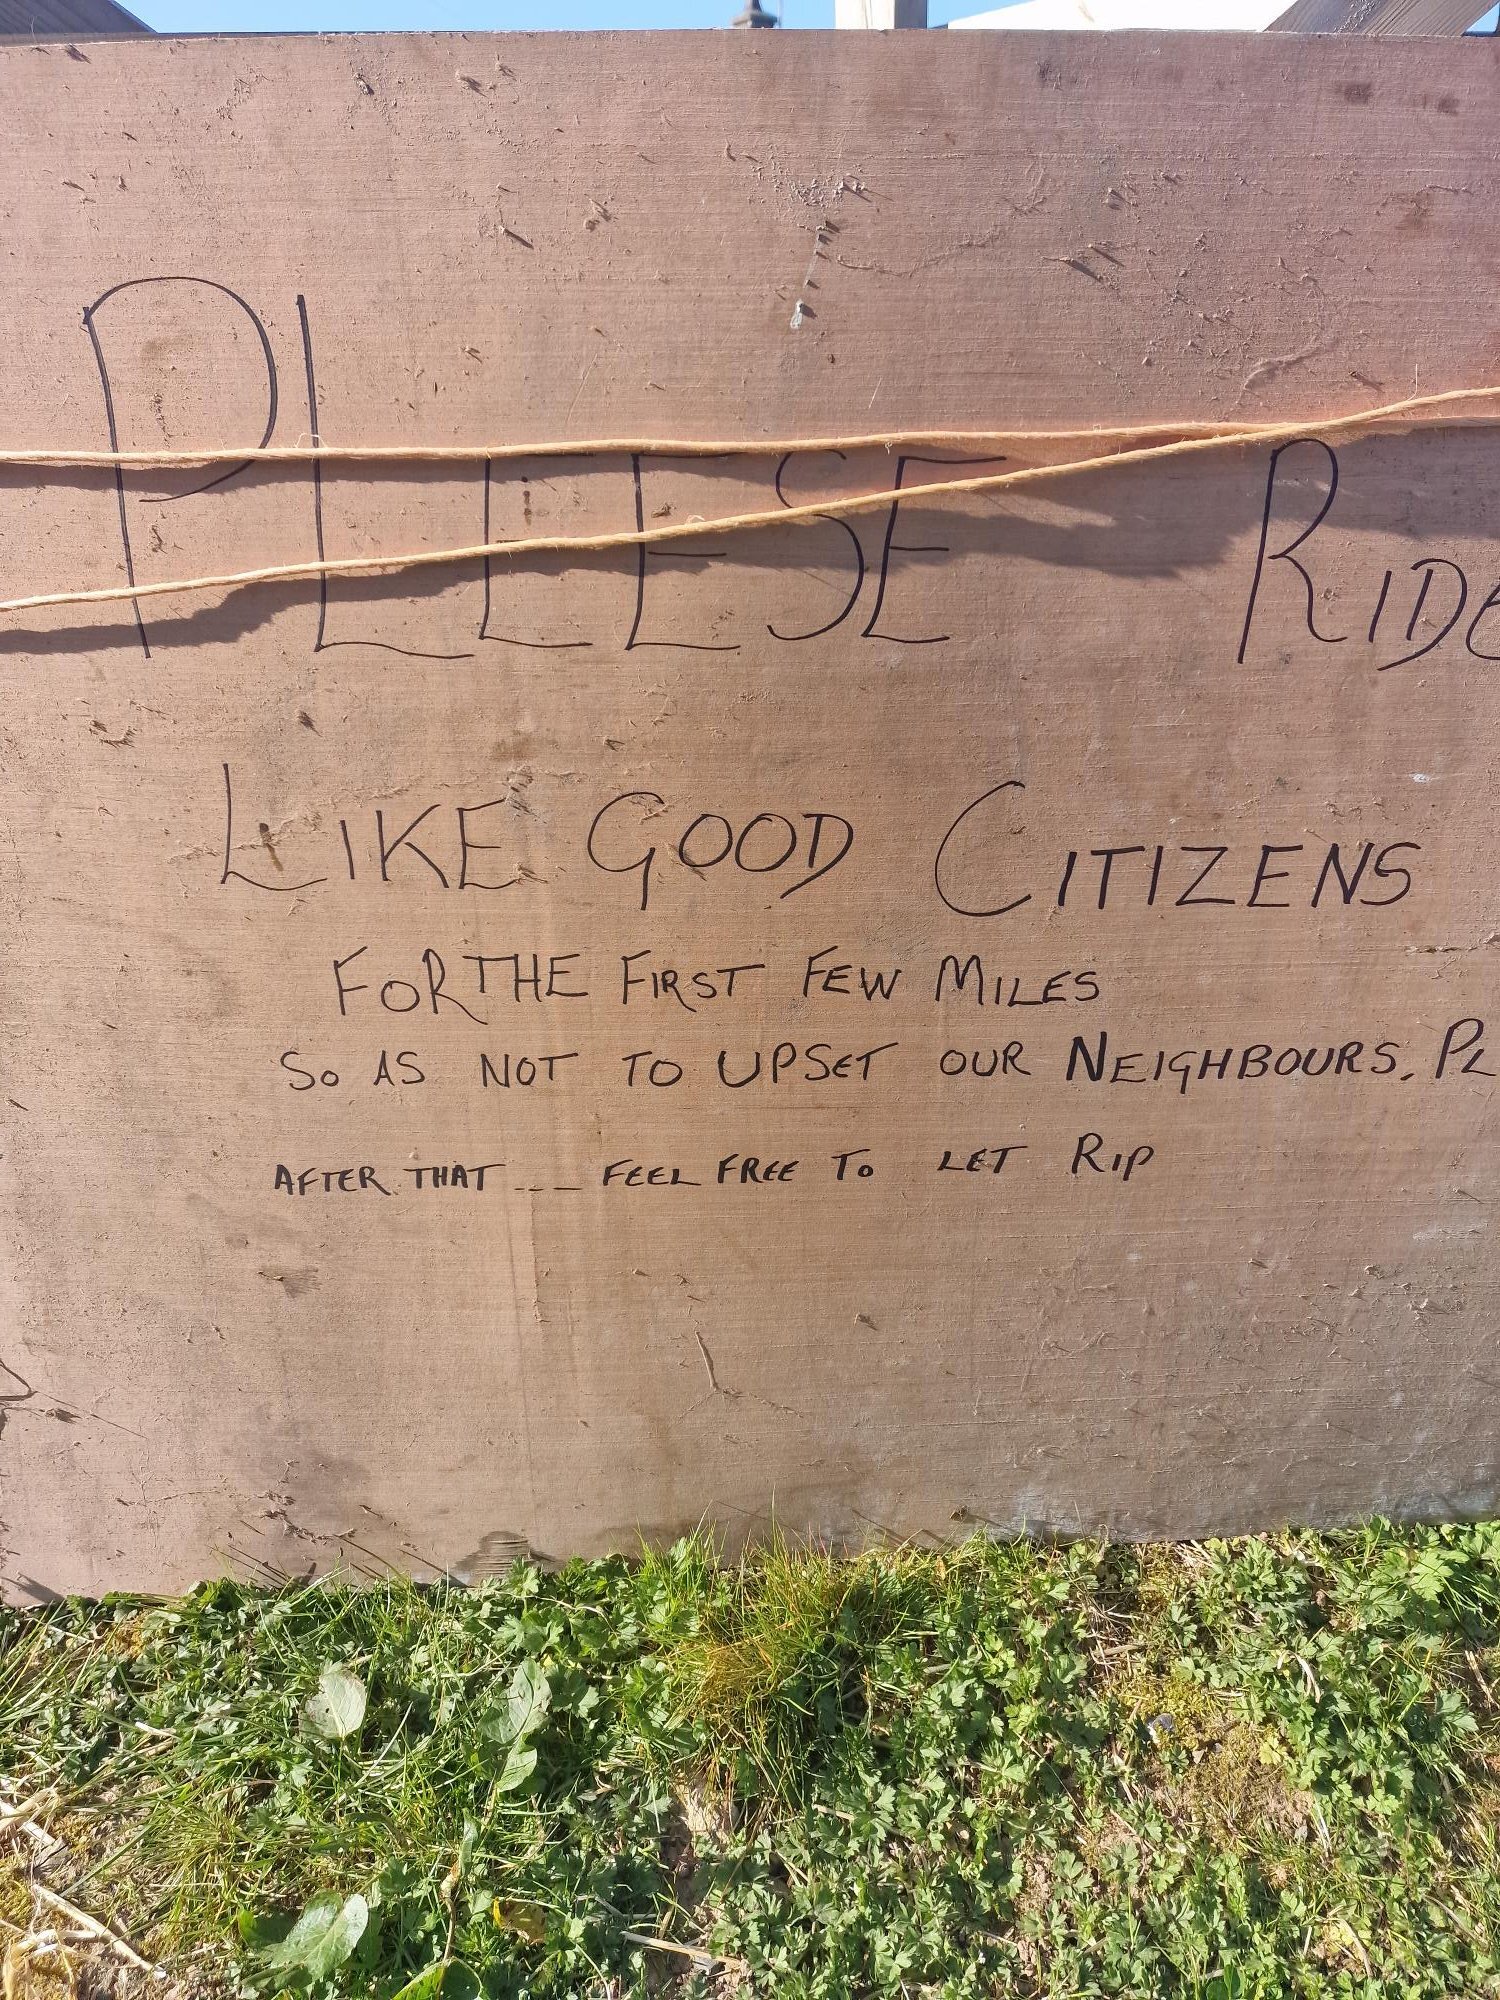 PLEESE RIDE
LIKE GOOD CITIZENS
FOR THE FIRST FEW MILES
SO AS NOT TO UPSET OUR NEIGHBOURS. PL
AFTER THAT ... FEEL FREE TO LET RIP